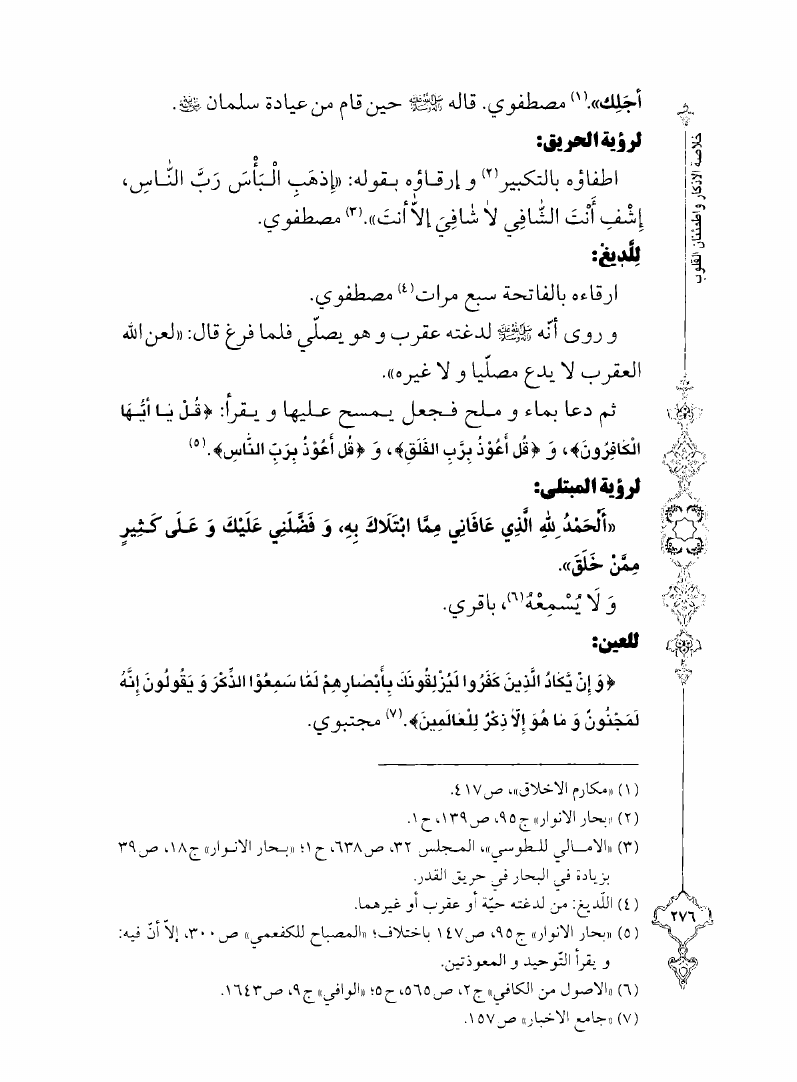 أجَلِك».(١) مصطفوي. قاله ﷺ حين قام من عيادة سلمان
لرؤية الحريق:
اطفاؤه بالتكبير(٢) و إرقاؤه بقوله: «إذهَبِ الْبَأْسَ رَبَّ النَّاسِ،
إشْفِ أَنْتَ الشَّافِي لاٰ شٰافِيَ إلاّٰ أنتَ».(٣) مصطفوي.
لِلَّدِيغ:
ارقاءه بالفاتحة سبع مرات(٤) مصطفوي.
و روى أنّه ﷺ لدغته عقرب و هو يصلّي فلما فرغ قال: «لعن الله
العقرب لا يدع مصلّيا و لا غيره».
ثم دعا بماء و ملح فجعل يمسح عليها و يقرأ: ﴿قُلْ يٰا أيُّهَا
الْكٰافِرُونَ﴾، وَ ﴿قُل أعُوْذُ بِرَّبِ الفَلَقِ﴾، وَ ﴿قُل أعُوْذُ بِرَبِّ النّٰاسِ﴾.(٥)
لرؤية المبتلى:
«أَلْحَمْدُ لِلّٰهِ الَّذِي عَافَانِي مِمَّا ابْتَلَاكَ بِهِ، وَ فَضَّلَنِي عَلَيْكَ وَ عَلَى كَثِيرٍ
مِمَّنْ خَلَقَ».
وَ لَا يُسْمِعْهُ(٦)، باقري.
للعين:
﴿وَ إِنْ يَّكَادُ الَّذِينَ كَفَرُوا لَيُزْلِقُونَكَ بِأَبْصَارِهِمْ لَمّٰا سَمِعُوْا الذِّكْرَ وَ يَقُولُونَ إِنَّهُ
لَمَجْنُونٌ وَ مٰا هُوَ إِلاّٰ ذِكْرٌ لِلْعٰالَمِينَ﴾.(٧) مجتبوي.
(١) «مكارم الاخلاق»، ص٤١٧.
(٢) «بحار الانوار» ج٩٥، ص١٣٩، ح١.
(٣) «الامالي للطوسي»، المجلس ٣٢، ص٦٣٨، ح١؛ «بحار الانوار» ج١٨، ص٣٩
بزيادة في البحار في حريق القدر.
(٤) اللّديغ: من لدغته حيّة أو عقرب أو غيرهما.
(٥) «بحار الانوار» ج٩٥، ص١٤٧ باختلاف؛ «المصباح للكفعمي» ص٣٠٠، إلاّ أنّ فيه:
و يقرأ التّوحيد و المعوذتين.
(٦) «الاصول من الكافي» ج٢، ص٥٦٥، ح٥؛ «الوافي» ج٩، ص١٦٤٣.
(٧) «جامع الاخبار» ص١٥٧.
خلاصة الاذكار واطمئنان القلوب
٢٧٦